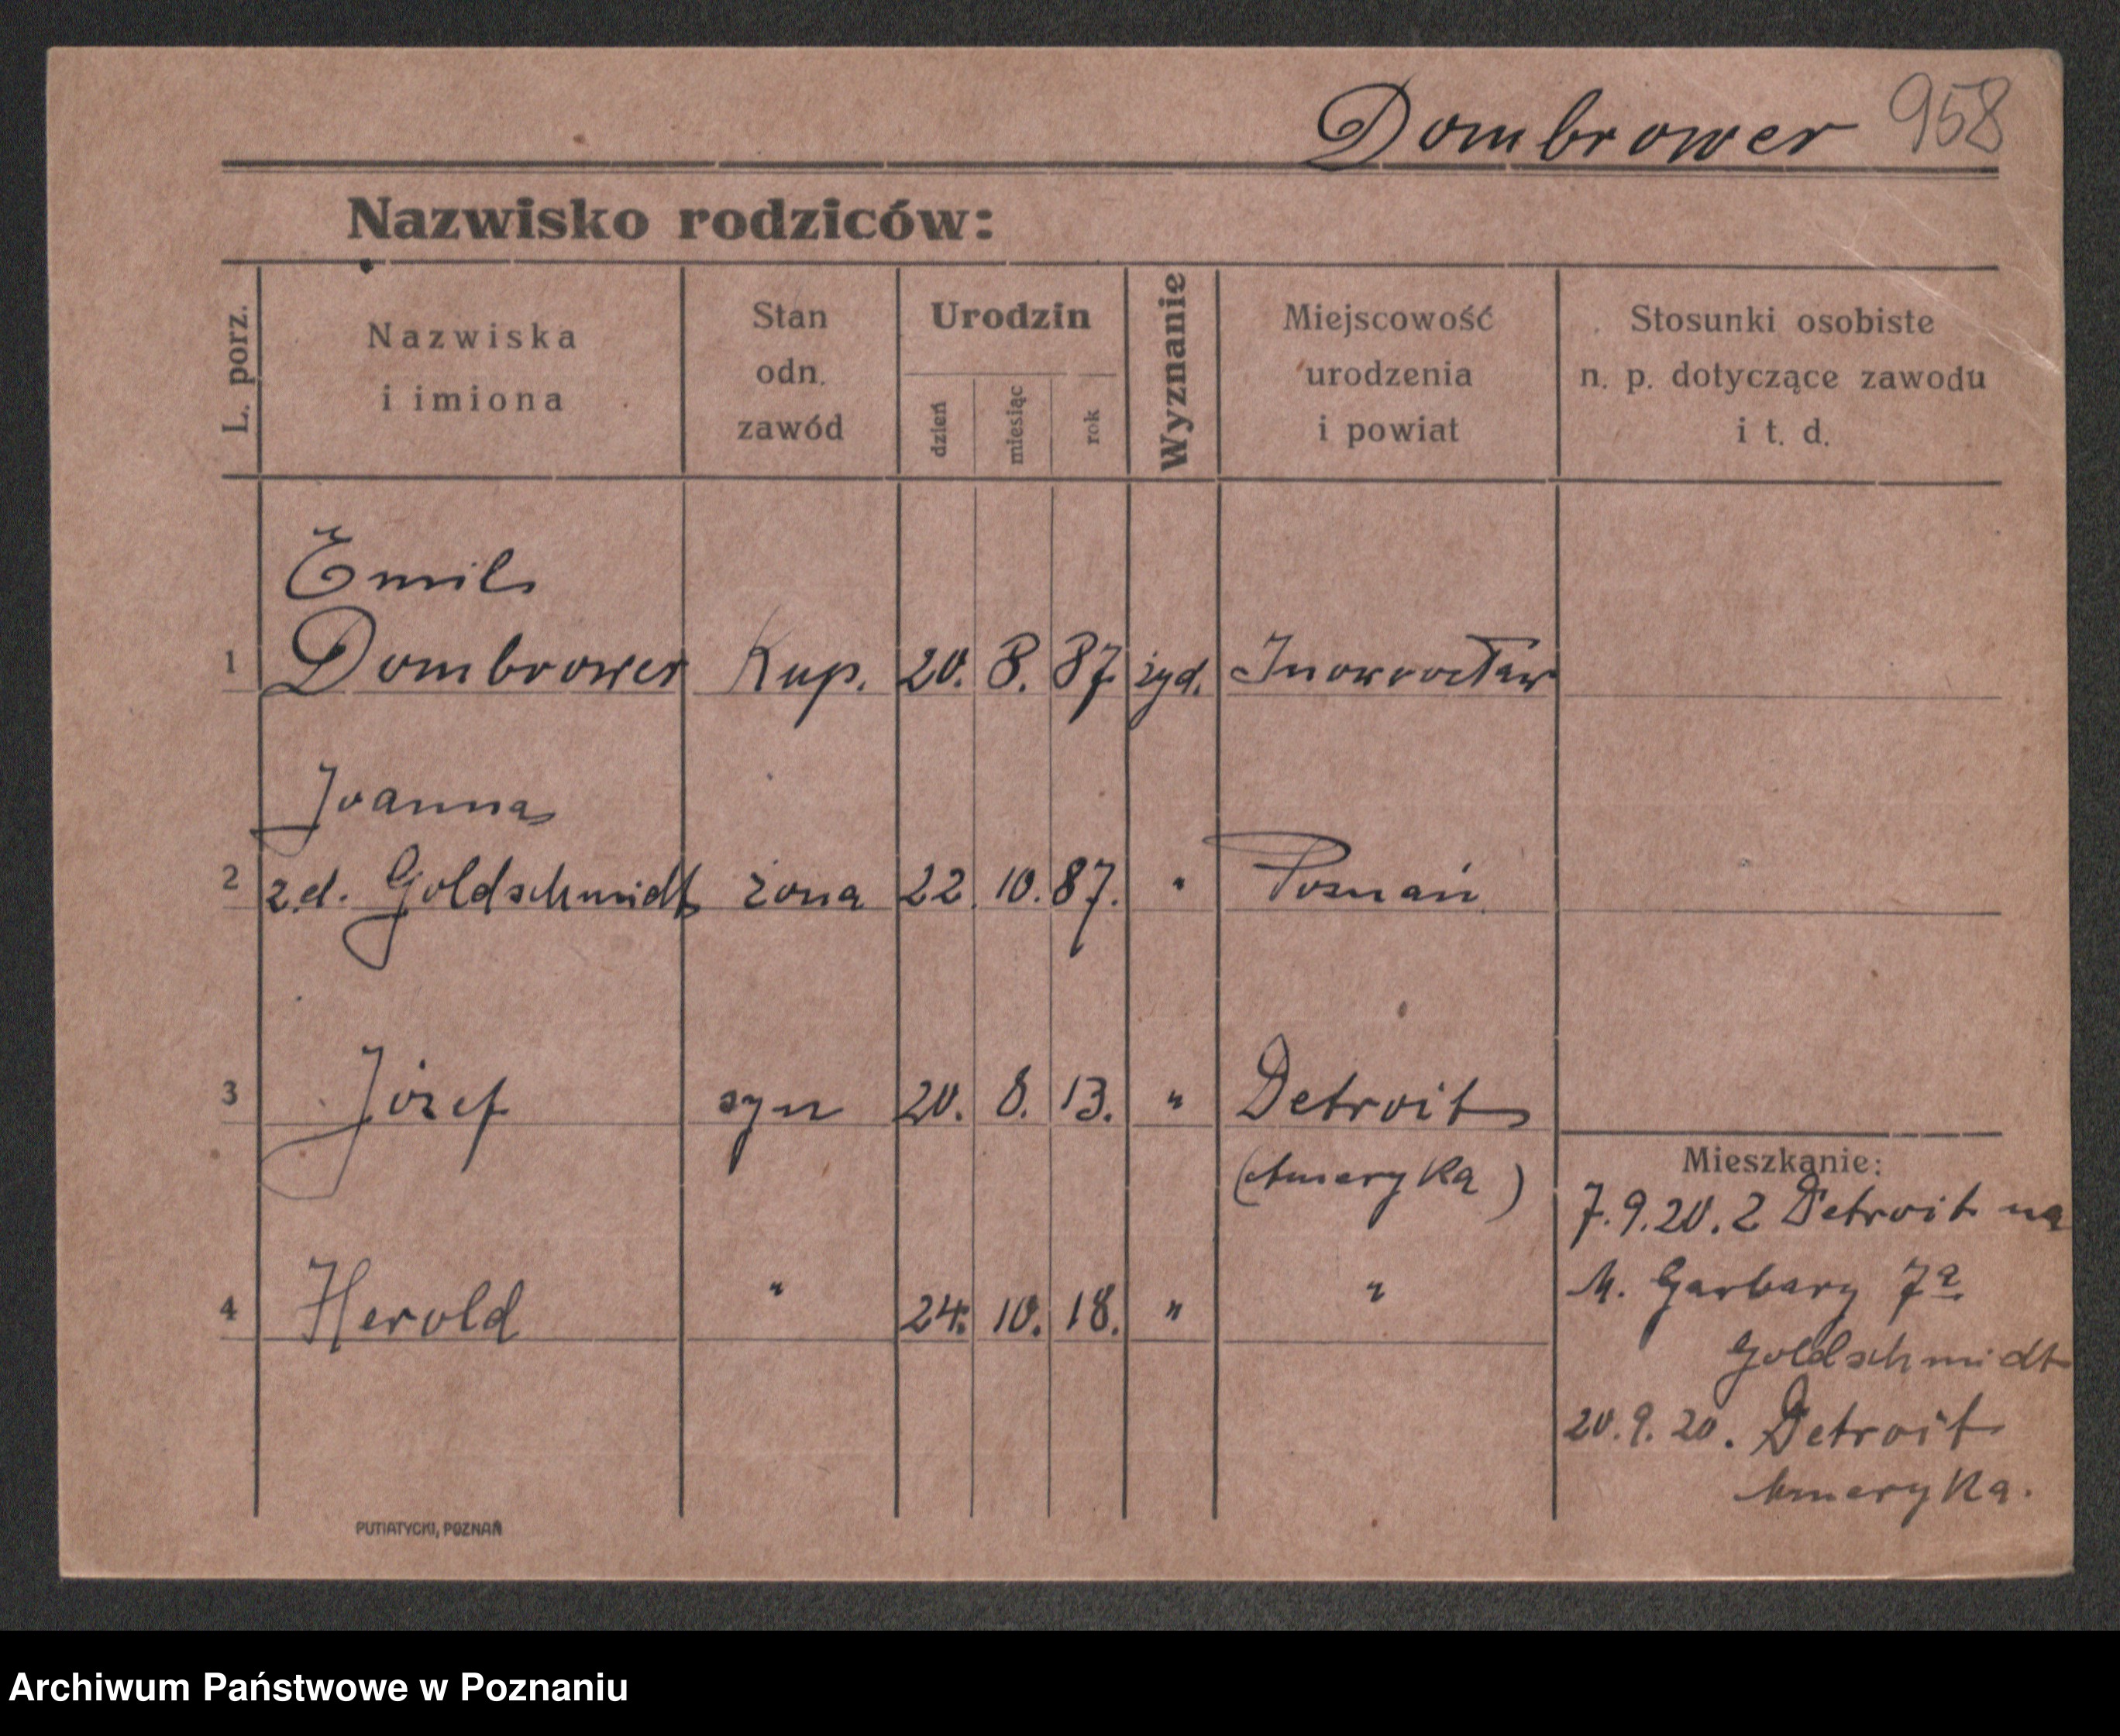 Dombrower 958
Nazwisko rodziców:
L. porz.
Nazwiska
i imiona
Stan
odn.
zawód
Urodzin
dzień
miesiąc
rok
Wyznanie
Miejscowość
urodzenia
i powiat
Stosunki osobiste
n. p. dotyczące zawodu
i t. d.
Emil
1 Dombrower Kup. 20. 8. 87 żyd. Inowrocław
Joanna
2 z.d. Goldschmidt żona 22 10. 87. " Poznań
3 Józef syn 20. 8. 13. " Detroit
(Ameryka)
4 Herold " 24. 10. 18. " "
Mieszkanie:
7.9.20. z Detroit na
M. Garbary 7a
Goldschmidt
20.9.20. Detroit
Ameryka.
PUTIATYCKI, POZNAŃ
Archiwum Państwowe w Poznaniu